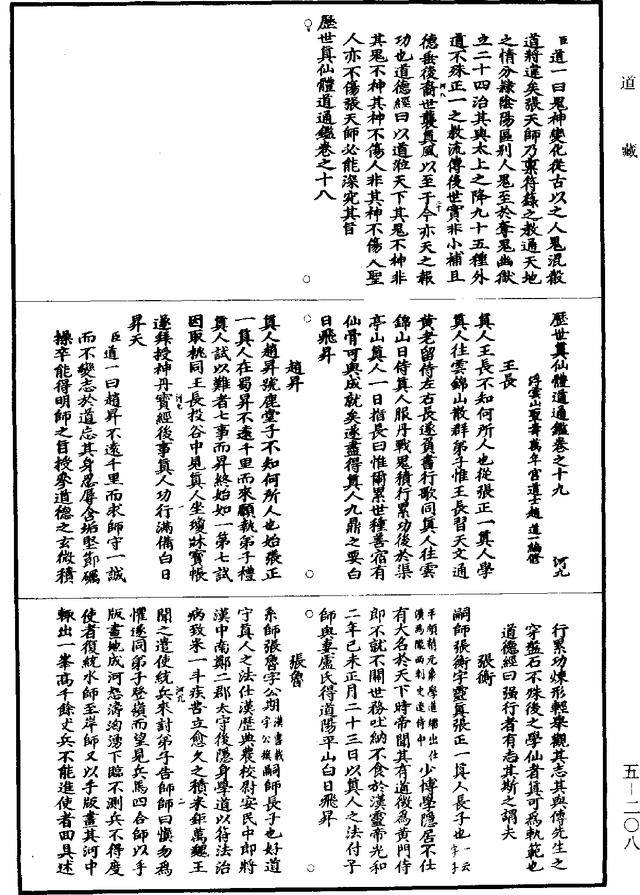 道藏
五－二〇八
臣道一曰鬼神變化從古以之人鬼混殽
道將違矣張天師乃稟符籙之教通天地
之情分隸陰陽區別人鬼至於奪鬼幽獄
立二十四治其與太上之降九十五種外
道不殊正一之教流傳後世實非小補且
德垂後裔世襲真風以至于今亦天之報
功也道德經曰以道蒞天下其鬼不神非
其鬼不神其神不傷人非其神不傷人聖
人亦不傷張天師必能深究其旨
歷世真仙體道通鑑卷之十八
歷世真仙體道通鑑卷之十九 河九
浮雲山聖壽萬年宮道士趙道一編修
王長
真人王長不知何所人也從張正一真人學
真人往雲錦山散群弟子惟王長習天文通
黃老留侍左右長遂負書行歌同真人往雲
錦山日侍真人服丹戰鬼積行累功後於渠
亭山真人一日指長曰惟爾累世種善宿有
仙骨可與成就矣遂盡得真人九鼎之要白
日飛昇
趙昇
真人趙昇號鹿堂子不知何所人也始張正
一真人在蜀昇不遠千里而來願執弟子禮
真人試以難者七事而昇終始如一第七試
因取桃同王長投谷中見真人坐瓊牀寶帳
遂拜授神丹寶經後事真人功行滿備白日
昇天
臣道一曰趙昇不遠千里而求師守一誠
而不變志於道忘其身忍辱含垢堅節礪
操卒能得明師之旨授參道德之玄微積
行累功煉形輕舉觀其志其與傅先生之
穿盤石不殊後之學仙者真可為軌範也
道德經曰强行者有志其斯之謂夫
張衡
嗣師張衡字靈真張正一真人長子也
少博學隱居不仕
有大名於天下時帝聞其有道徵為黃門侍
郎不就不關世務吐納不食於漢靈帝光和
二年己未正月二十三日以真人之法付子
師與妻盧氏得道陽平山白日飛昇
張魯
系師張魯字公期嗣師長子也好道
守真人之法仕漢歷典農校尉安民中郎將
漢中南鄭二郡太守後隱身學道以符法治
病致米一斗疾苦立愈久之積米鉅萬魏王
聞之遣使統兵來討弟子告師師曰慎勿為
懼遂同弟子登嶺而望見兵馬四合師以手
版畫地成河怒濤洶湧下臨不測兵不得度
使者復統水師至岸師又以手版畫其河中
輒出一峯高千餘丈兵不能進使者回具述